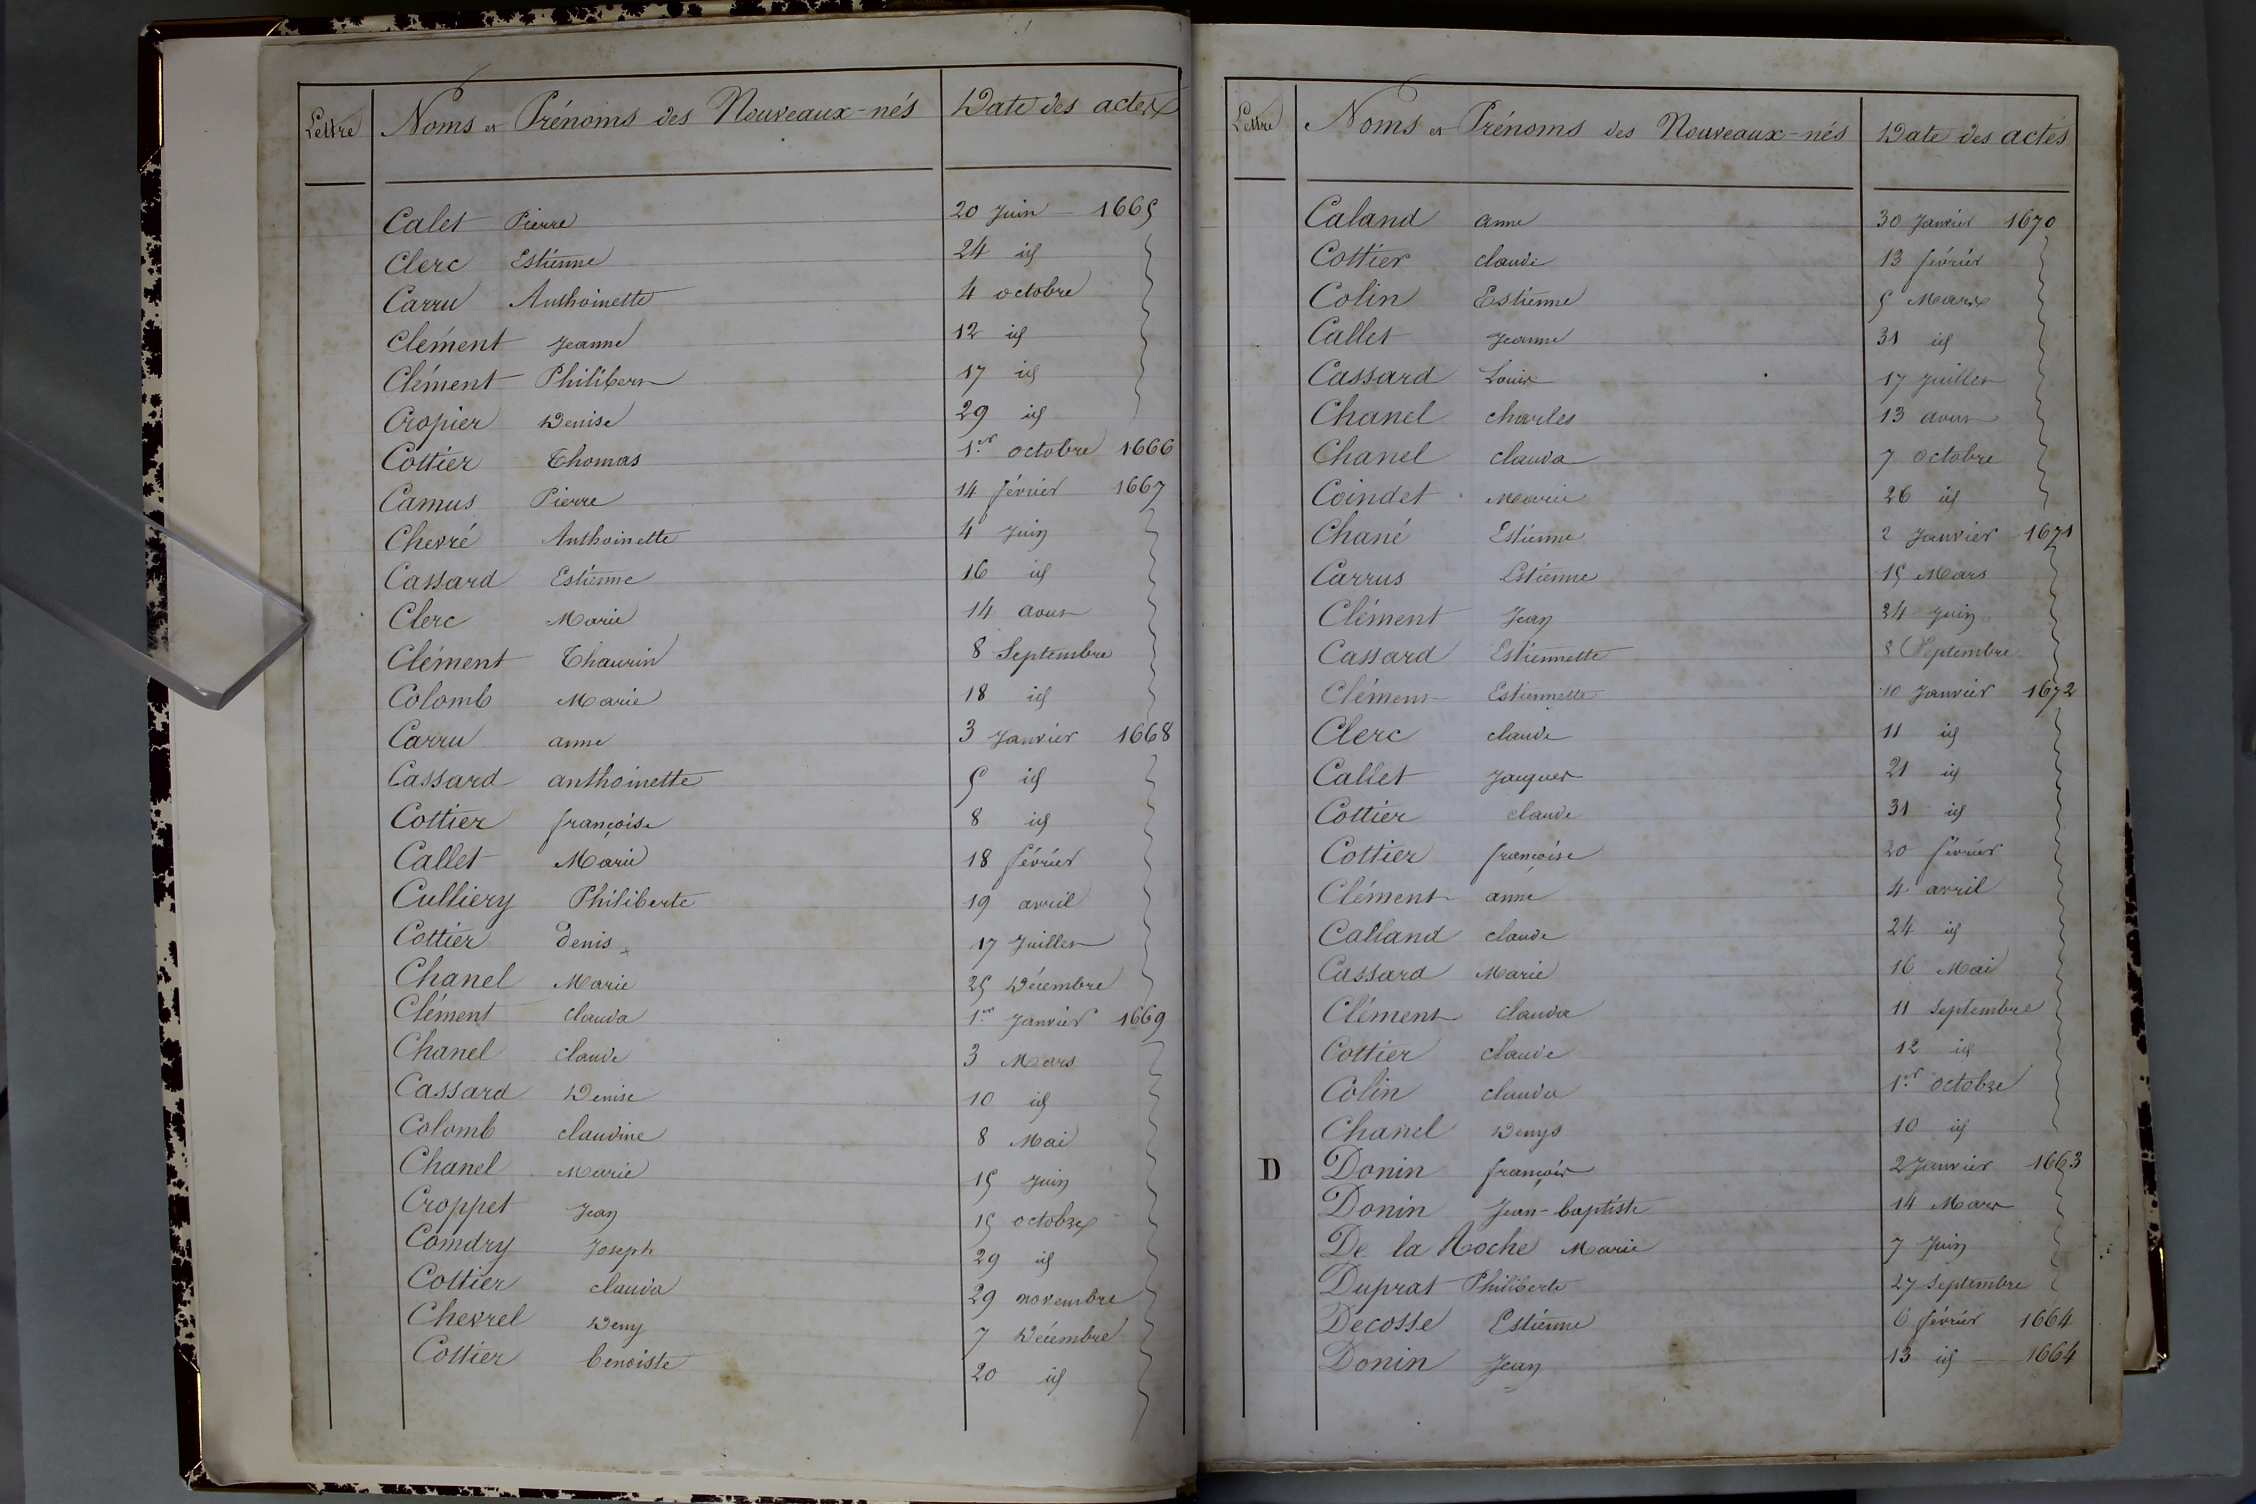 Lettre Noms et Prénoms des Nouveaux-nés Date des actes
Calet Pierre 20 Juin 1665
Clerc Estienne 24 id
Carru Anthoinette 4 octobre
Clément Jeanne 12 id
Clément Philibert 17 id
Cropier Denise 29 id
Cottier Thomas 1er octobre 1666
Camus Pierre 14 février 1667
Chevré Anthoinette 4 Juin
Cassard Estienne 16 id
Clerc Marie 14 aout
Clément Thaurin 8 Septembre
Colomb Marie 18 id
Carru anne 3 Janvier 1668
Cassard anthoinette 5 id
Cottier françoise 8 id
Callet Marie 18 février
Culliery Philiberte 19 avril
Cottier Denis 17 Juillet
Chanel Marie 25 Décembre
Clément clauda 1er Janvier 1669
Chanel claude 3 Mars
Cassard Denise 10 id
Colomb claudine 8 Mai
Chanel Marie 15 Juin
Croppet Jean 15 octobre
Comdry Joseph 29 id
Cottier clauda 29 novembre
Chevrel Deny 7 Décembre
Cottier benoiste 20 id
Lettre Noms et Prénoms des Nouveaux-nés Date des actes
Caland anne 30 Janvier 1670
Cottier claude 13 février
Colin Estienne 5 Mars
Callet Jeanne 31 id
Cassard Louis 17 Juillet
Chanel charles 13 aout
Chanel clauda 7 octobre
Coindet Marie 26 id
Chané Estienne 2 Janvier 1671
Carrus Estienne 15 Mars
Clément Jean 24 Juin
Cassard Estiennette 8 Septembre
Clément Estiennette 10 Janvier 1672
Clerc claude 11 id
Callet Jacques 21 id
Cottier claude 31 id
Cottier françoise 20 février
Clément anne 4 avril
Calland claude 24 id
Cassard Marie 16 Mai
Clément clauda 11 Septembre
Cottier claude 12 id
Colin clauda 1er octobre
Chanel Denys 10 id
D Donin françois 2 Janvier 1663
Donin Jean-baptiste 14 Mars
De la Roche Marie 7 Juin
Duprat Philiberte 27 Septembre
Decosse Estienne 6 février 1664
Donin Jean 13 id 1664